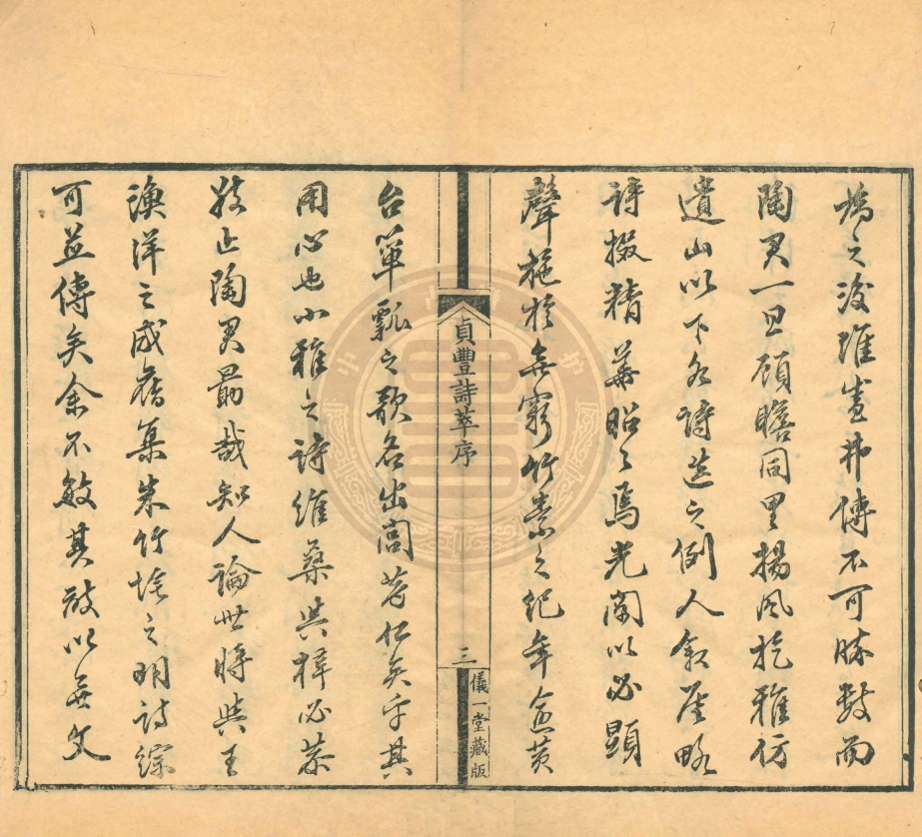 為之後雖盛弗傳不可勝數而
陶君一旦顧瞻同里揚風扢雅仿
遺山以下各詩選之例人敘厓略
詩掇精華昭昭焉光闇以必顯
聲施於無窮竹素之紀年食貧
貞豐詩萃序
三
儀一堂藏版
台簞瓢之歌名出閭若仁矣乎其
用心也小雅之詩維桑與梓必恭
敬止陶君勗哉知人論世將與王
漁洋之感舊集朱竹垞之明詩綜
可並傳矣余不敏其敢以無文